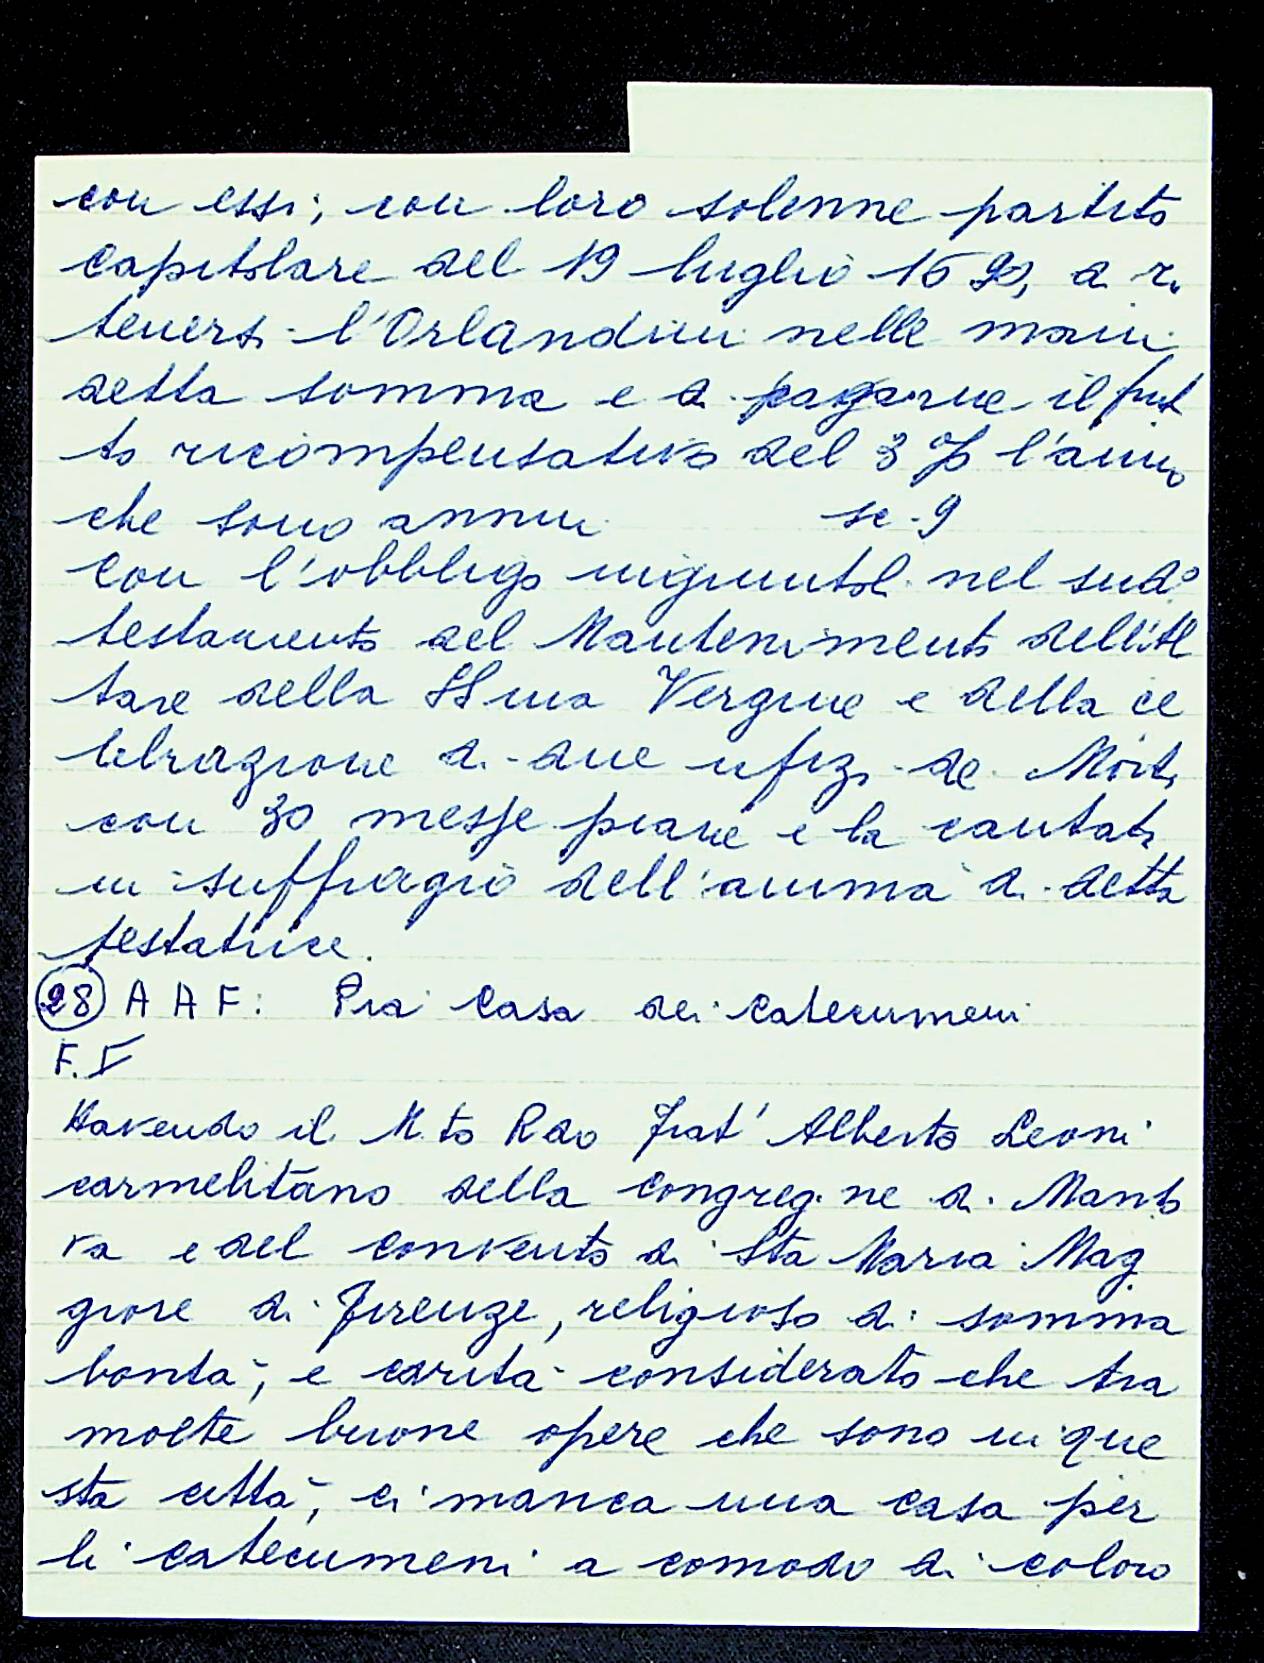 con essi; con loro solenne partito
capitolare del 19 luglio 1690, a ri
tenersi l'Orlandini nelle mani
detta somma e a pagarne il frut
to ricompensativo del 3% l'anno
che sono annui sc. 9
Con l'obbligo ingiuntol nel sudº
testamento del Mantenimento dell'Al
tare della SSma Vergine e della ce
lebrazione di due ufizi de Morti
con 30 messe piane e la cantata
in suffragio dell'anima di detta
testatrice.
28 A A F: Pia Casa dei Catecumeni
F. V
Havendo il M.to Rdo Frat' Alberto Leoni
carmelitano della congreg.ne di Manto
va e del convento di Sta Maria Mag
giore di Firenze, religioso di somma
bontà, e carità considerato che tra
molte buone opere che sono in que
sta città, ci manca una casa per
li catecumeni a comodo di coloro